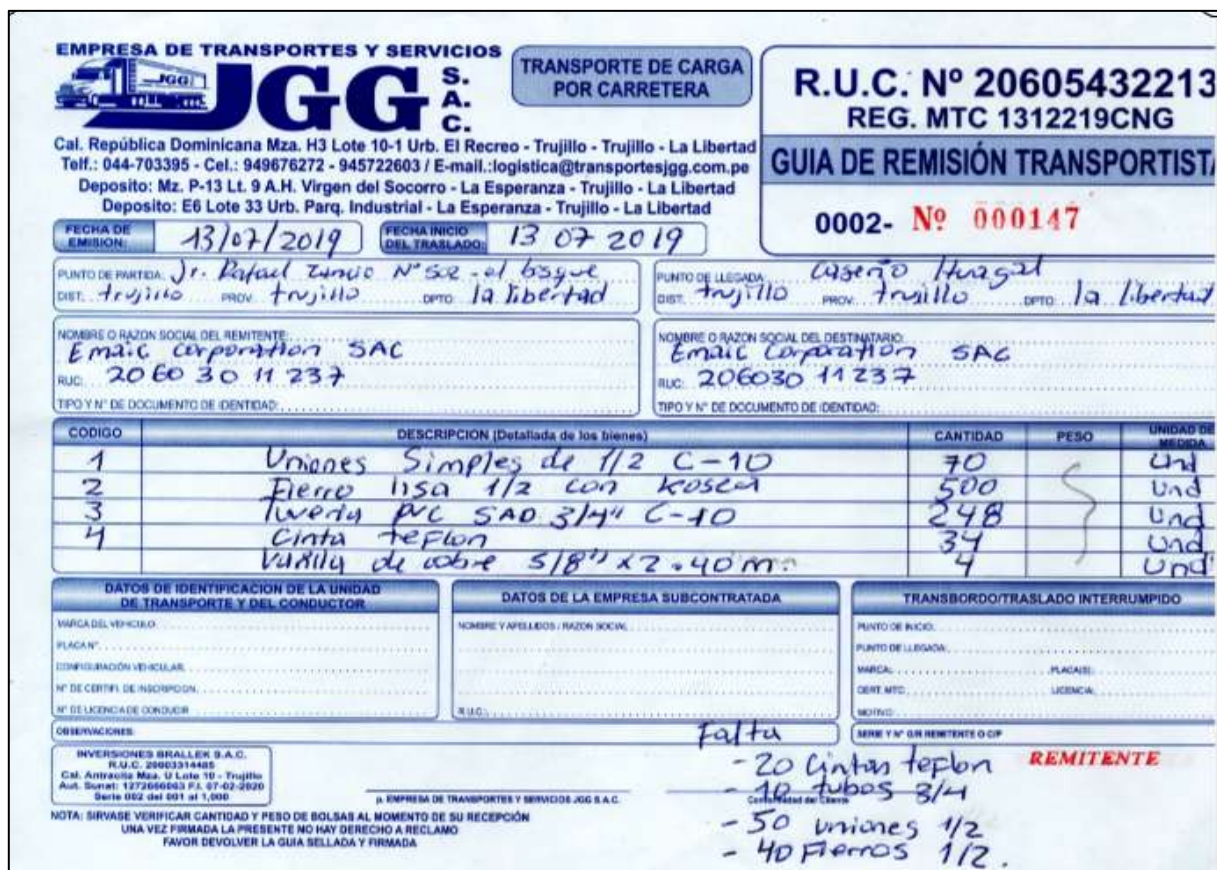 EMPRESA DE TRANSPORTES Y SERVICIOS
JGG
JGG S.A.C.
TRANSPORTE DE CARGA
POR CARRETERA
R.U.C. Nº 20605432213
REG. MTC 1312219CNG
GUIA DE REMISIÓN TRANSPORTISTA
0002- Nº 000147
Cal. República Dominicana Mza. H3 Lote 10-1 Urb. El Recreo - Trujillo - Trujillo - La Libertad
Telf.: 044-703395 - Cel.: 949676272 - 945722603 / E-mail.:logistica@transportesjgg.com.pe
Deposito: Mz. P-13 Lt. 9 A.H. Virgen del Socorro - La Esperanza - Trujillo - La Libertad
Deposito: E6 Lote 33 Urb. Parq. Industrial - La Esperanza - Trujillo - La Libertad
FECHA DE EMISION: 13/07/2019 FECHA INICIO DEL TRASLADO: 13 07 2019
PUNTO DE PARTIDA: Jr. Rafael N° 502 - el bsque
DIST. trujillo PROV. trujillo DPTO. la libertad
PUNTO DE LLEGADA: Caserio
DIST. trujillo PROV. trusillo DPTO. la libertad
NOMBRE O RAZON SOCIAL DEL REMITENTE:
Emaic Corporation SAC
RUC: 20603011237
TIPO Y N° DE DOCUMENTO DE IDENTIDAD:
NOMBRE O RAZON SOCIAL DEL DESTINATARIO:
Emaic Corporation SAC
RUC: 20603011237
TIPO Y N° DE DOCUMENTO DE IDENTIDAD:
CODIGO DESCRIPCION (Detallada de los bienes) CANTIDAD PESO UNIDAD DE MEDIDA
1 Uniones Simples de 1/2 C-10 70 Und
2 Fierro lisa 1/2 con 500 Und
3 PVC SAD 3/4" C-10 248 Und
4 Cinta teflon 34 Und
de cobre 5/8" x 2.40 m. 4 Und
DATOS DE IDENTIFICACION DE LA UNIDAD
DE TRANSPORTE Y DEL CONDUCTOR
MARCA DEL VEHICULO:
PLACA N°:
CONFIGURACIÓN VEHICULAR:
N° DE CERTIFI. DE INSCRIPCION:
N° DE LICENCIA DE CONDUCIR
DATOS DE LA EMPRESA SUBCONTRATADA
NOMBRE Y APELLIDOS / RAZON SOCIAL:
R.U.C.:
TRANSBORDO/TRASLADO INTERRUMPIDO
PUNTO DE INICIO:
PUNTO DE LLEGADA:
MARCA: PLACA(S):
CERT. MTC: LICENCIA:
MOTIVO:
OBSERVACIONES:
SERIE Y N° G/R REMITENTE O C/P
Falta
- 20 Cintas teflon
- 10 tubos 3/4
- 50 uniones 1/2
- 40 Fierros 1/2.
REMITENTE
INVERSIONES BRALLEK S.A.C.
R.U.C. 20603314485
Cal. Antracita Mza. U Lote 10 - Trujillo
Aut. Sunat: F.I. 07-02-2020
Serie 002 del 001 al 1,000
p. EMPRESA DE TRANSPORTES Y SERVICIOS JGG S.A.C.
Conformidad del Cliente
NOTA: SIRVASE VERIFICAR CANTIDAD Y PESO DE BOLSAS AL MOMENTO DE SU RECEPCIÓN
UNA VEZ FIRMADA LA PRESENTE NO HAY DERECHO A RECLAMO
FAVOR DEVOLVER LA GUIA SELLADA Y FIRMADA